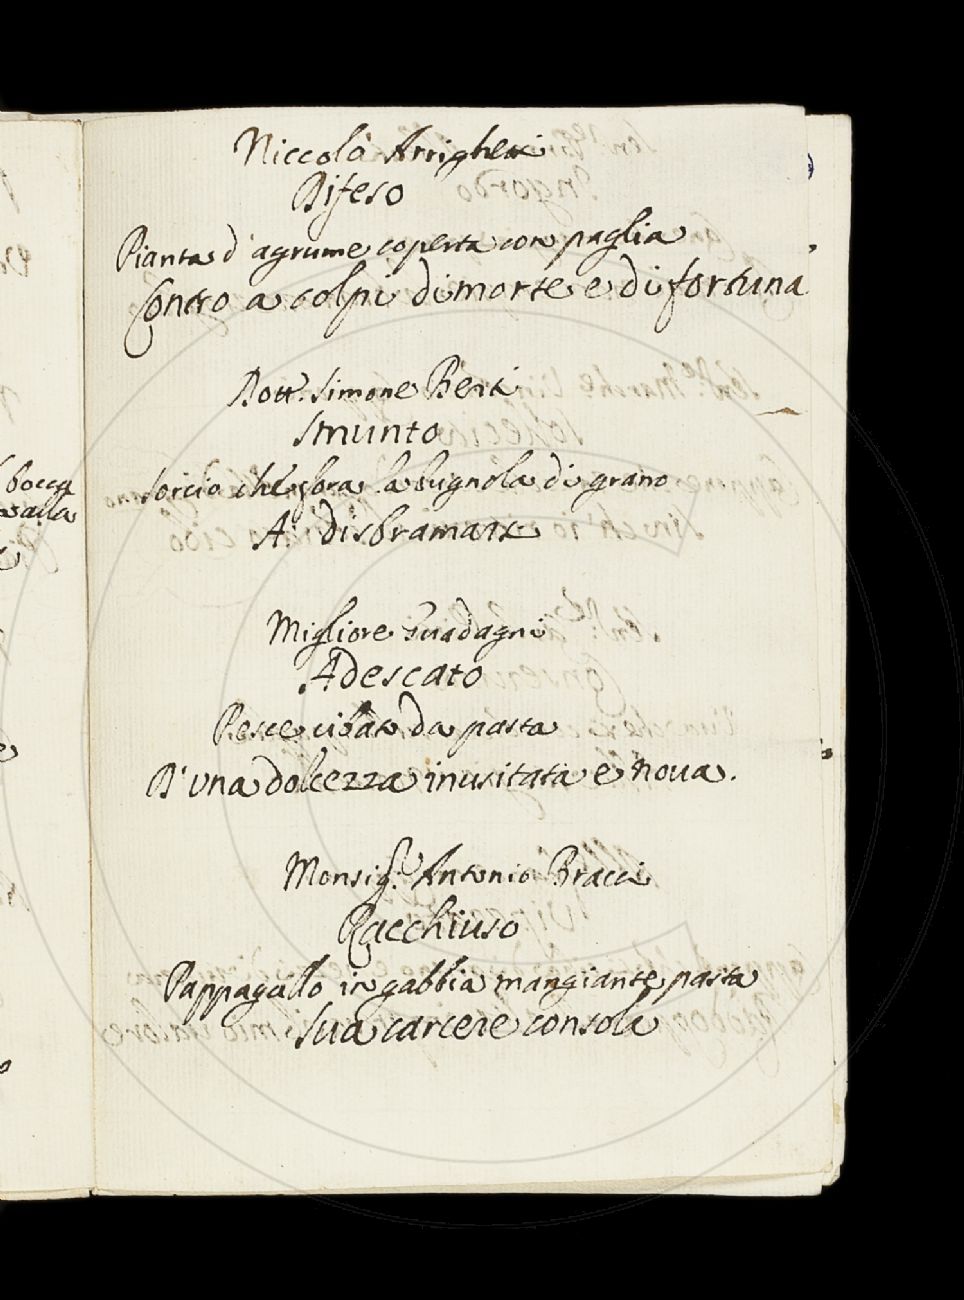 Niccolò Arrighetti
Difeso
Pianta d'agrume coperta con paglia
Contro a colpi di morte e di fortuna
Dott. Simone Berti
Smunto
Sorcio che fora la bugnola di grano
A disbramare
Migliore Guadagni
Adescato
Pesce cibato da pasta
D'una dolcezza inusitata e nova.
Monsig.r Antonio Bracci
Racchiuso
Pappagallo in gabbia mangiante pasta
Sua carcere consola
bocca
alla